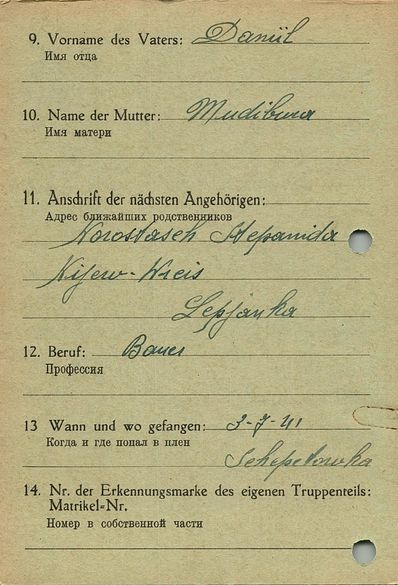 9. Vorname des Vaters: Daniil
Имя отца
10. Name der Mutter:
Имя матери
11. Anschrift der nächsten Angehörigen:
Адрес ближайших родственников
Stepanida
Kijew-Kreis
Lepjanka
12. Beruf: Bauer
Профессия
13 Wann und wo gefangen: 3-7-41
Когда и где попал в плен
Schepetowka
14. Nr. der Erkennungsmarke des eigenen Truppenteils:
Matrikel-Nr.
Номер в собственной части